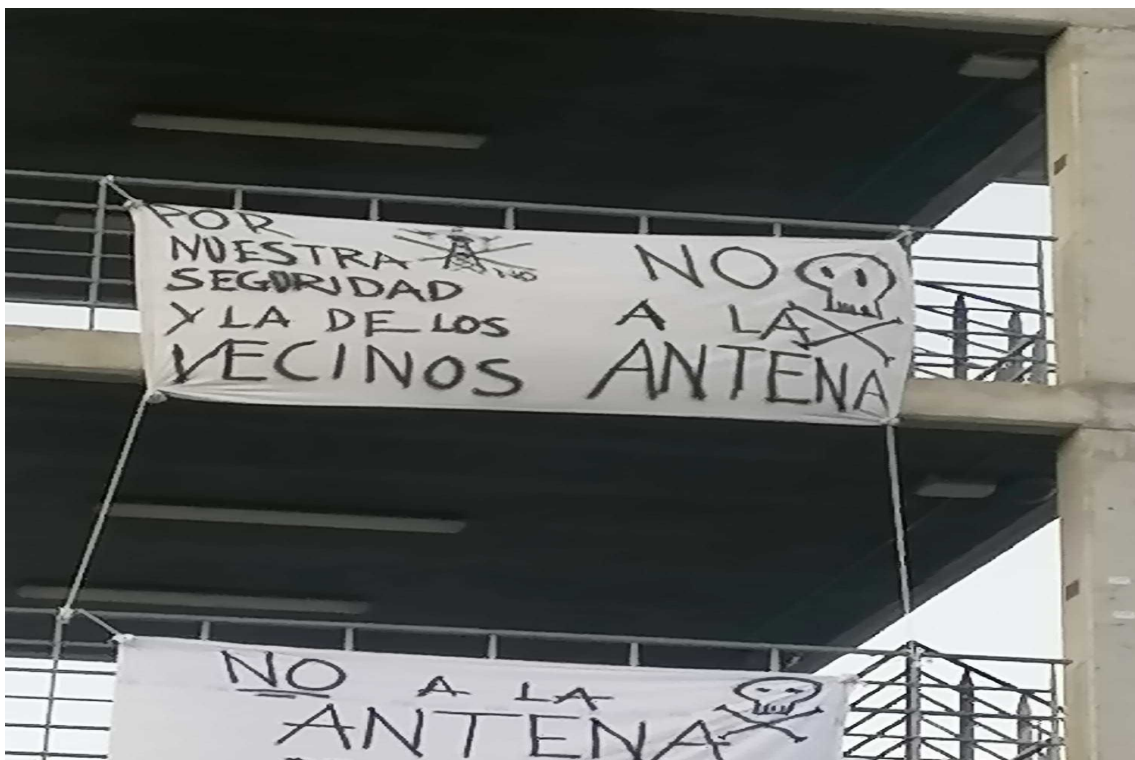 POR
NUESTRA
SEGURIDAD
Y LA DE LOS
VECINOS
NO
A LA
ANTENA
NO A LA
ANTENA